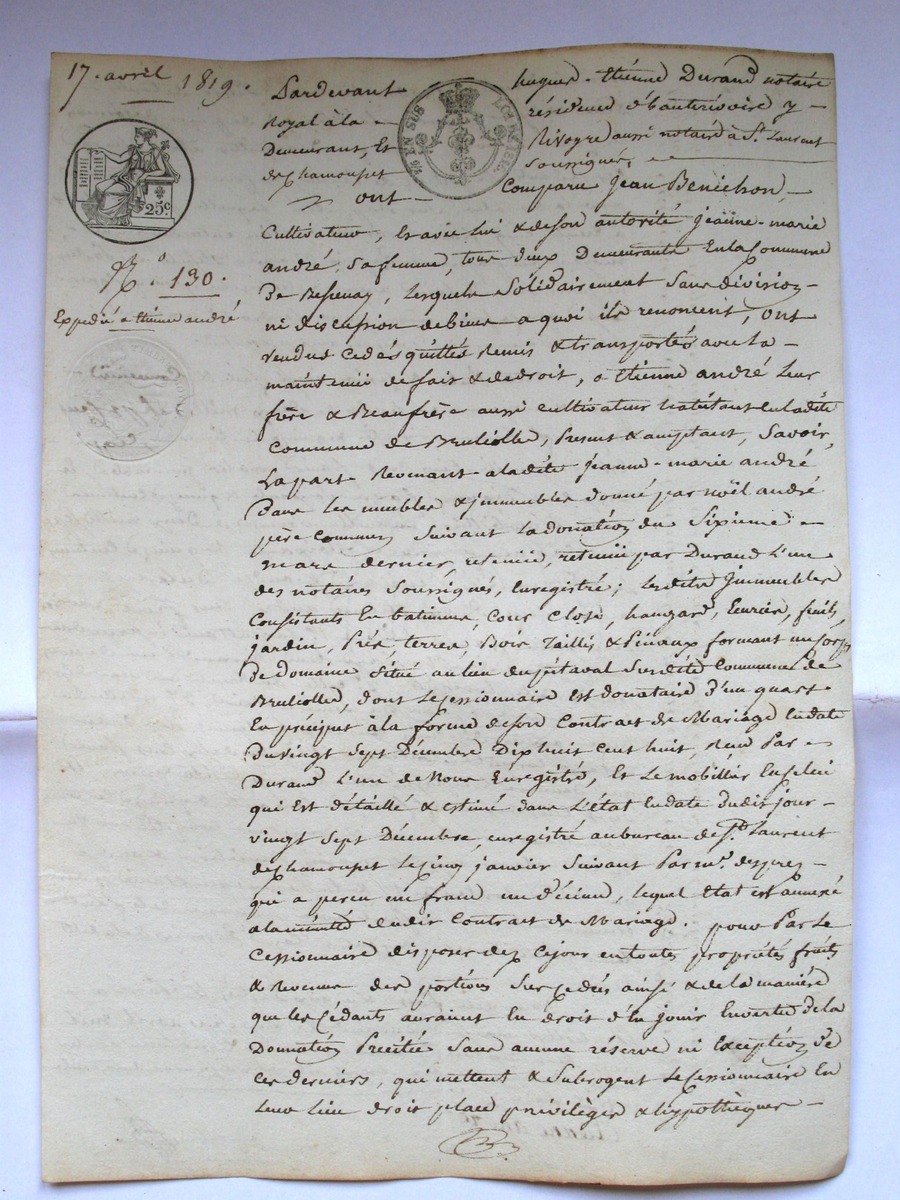 17. avril 1819.
25c
N.o 130.
Expedié a étienne andré
EN SUS
Pardevant hugues-étienne Durand notaire
Royal à la résidence d'hauterivoire y
Demeurant, Et Rivoyre aussi notaire à St. Laurent
de Chamousset Soussignés,
ont Comparu Jean Benichon,
Cultivateur, Et avec lui & de son autorité jeanne-marie
andré, sa femme, tous deux Demeurants En la Commune
De Bessenay, lesquels Solidairement Sans division
ni discussion de biens a quoi ils renoncent, ont
vendus cédés quittés Remis & transportés avec la
maintenue de fait & de droit, a étienne andré Leur
frère & Beaufrère aussi cultivateur habitant en ladite
Commune de Brullolle, Present & acceptant, Savoir,
La part Revenant à ladite jeanne-marie andré
Dans les meubles & immeubles donné par noël andré
père commun Suivant la donation du Sixieme
mars dernier, retenüe par Durand L'un
des notaires Soussignés, Enregistré; Lesdits Immeubles
Consistants En batimens, Cour Close, hangard, Ecuries,
jardin, Prés, terres, Bois Taillis & Pinaux formant un corps
De domaine Situé au lieu du pitaval Susdite Commune De
Brullolle, dont Le Cessionnaire Est donataire D'un quart
En préciput à la forme de son Contract de Mariage En date
Du vingt Sept Décembre Dix huit Cent huit, Reçu Par
Durand L'un de Nous Enregistré, Et Le mobillier
qui Est détaillé & estimé dans L'état En date dudit jour
vingt Sept Décembre, enregistré au bureau de St. Laurent
de Chamousset Le cinq janvier Suivant Par mr.
qui a perçu un franc un décime, lequel Etat est annexé
a la minute dudit Contract de Mariage. pour Par Le
Cessionnaire disposer dez Cejour en toutes propriétés fruits
& Revenus des portions Sus cédées ainsi & de la manière
que les Cédants auraient En droit d'En jouir En vertu de la
Donnation Précitée Sans aucune réserve ni Exception De
ces derniers, qui mettent & Subrogent Le Cessionnaire En
Leur Lieu droit place privilèges & hypothèques